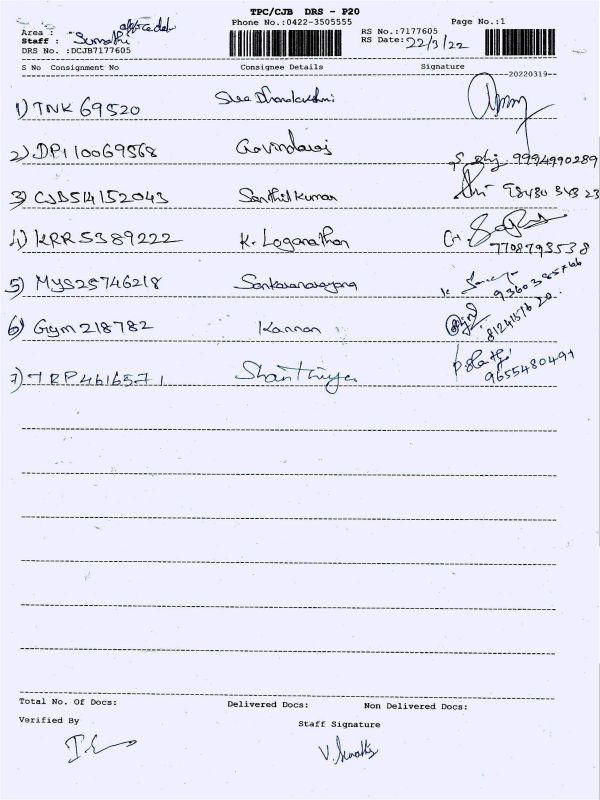 TPC/CJB DRS - P20
Phone No.:0422-3505555 Page No.:1
Area :
Staff : Sumathi
RS No.:7177605
RS Date: 22/3/22
DRS No. :DCJB7177605
S No Consignment No Consignee Details Signature
--20220319--
1) TNK 69520 Sree Dhanalakshmi
2) DPI 10069568 Govindaraj 9994990289
3) CJB514152043 Senthilkumar 98480 343 23
4) KRR 5389222 K. Loganathan 7708793538
5) MYS25746218 Sankaranarayana 9360385766
6) Gym 218782 Kannan 8124157620
7) TRP4616571 Shanthiya 9655480491
Total No. Of Docs: Delivered Docs: Non Delivered Docs:
Verified By Staff Signature
V. Sumathi